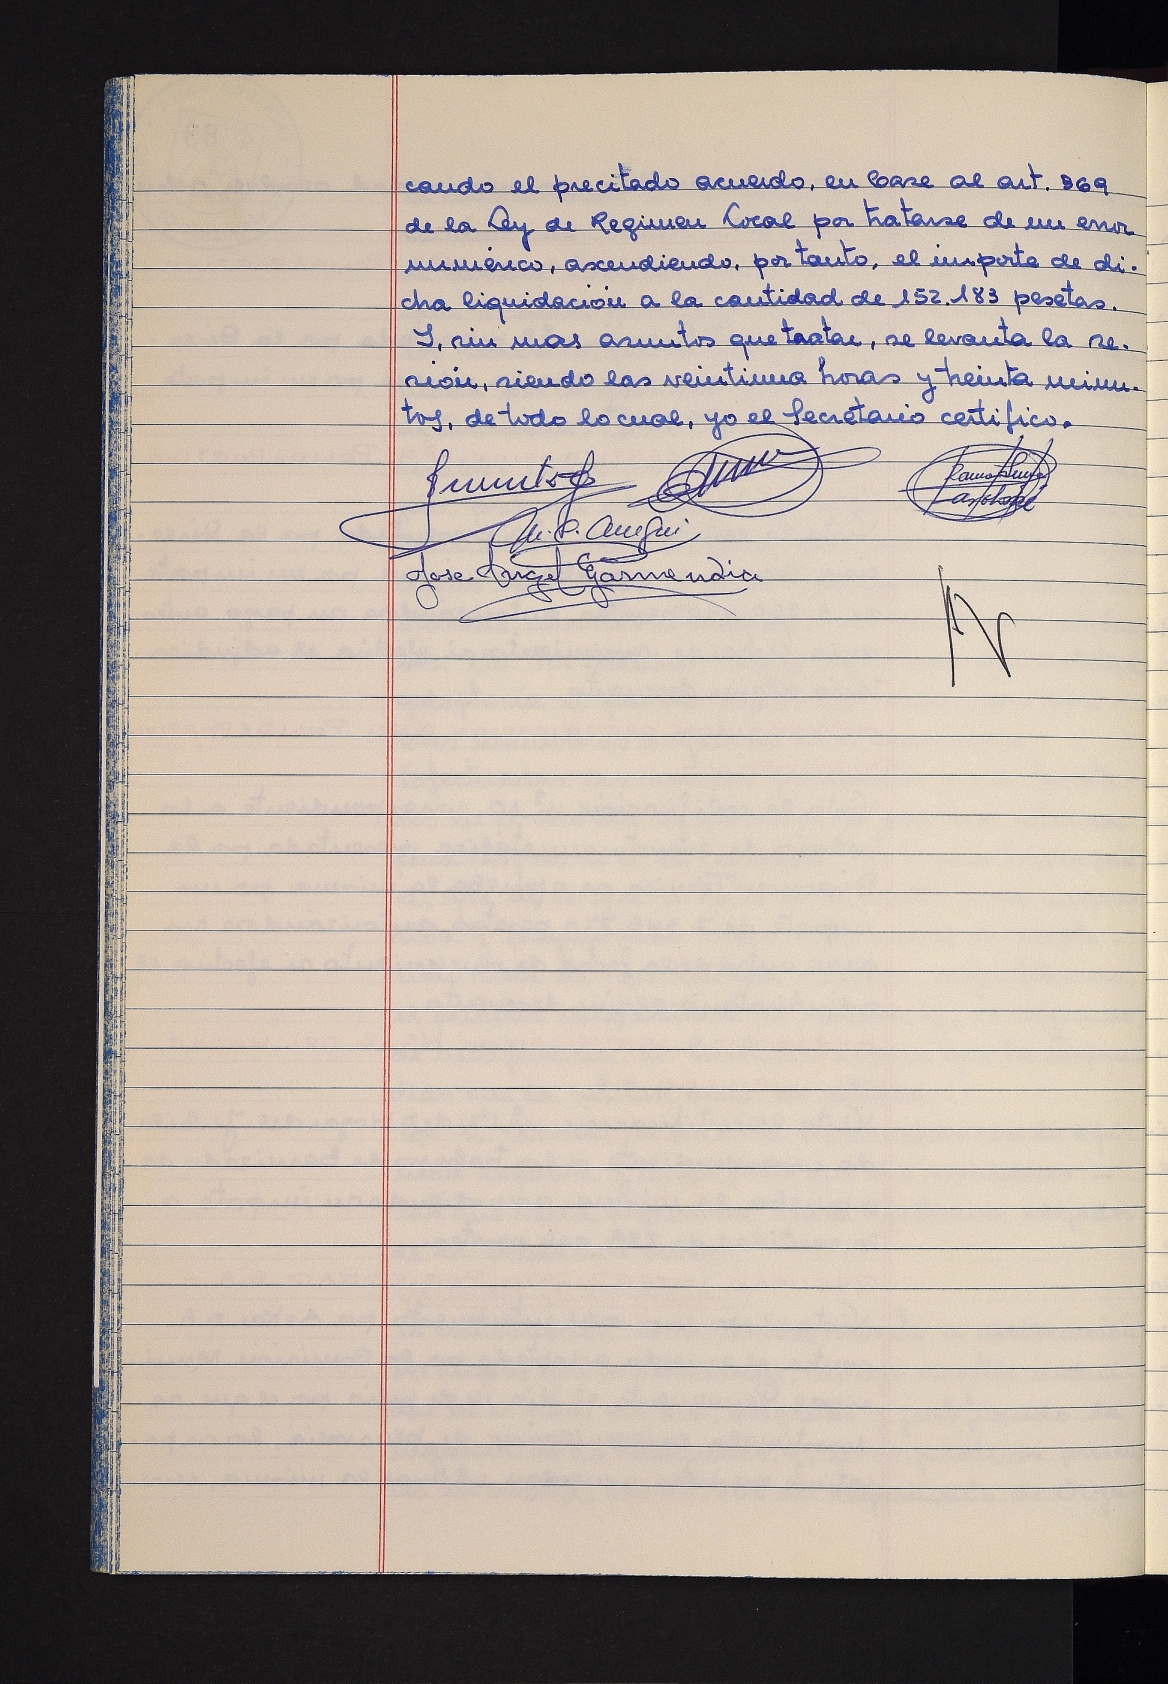 cando el precitado acuerdo, en base al art. 369
de la Ley de Regimen Local por tratarse de un error
numérico, ascendiendo, por tanto, el importe de di-
cha liquidación a la cantidad de 152.183 pesetas.
Y, sin mas asuntos que tratar, se levanta la se-
sión, siendo las veintiuna horas y treinta minu-
tos, de todo lo cual, yo el Secretario certifico.
Jose Angel Garmendia